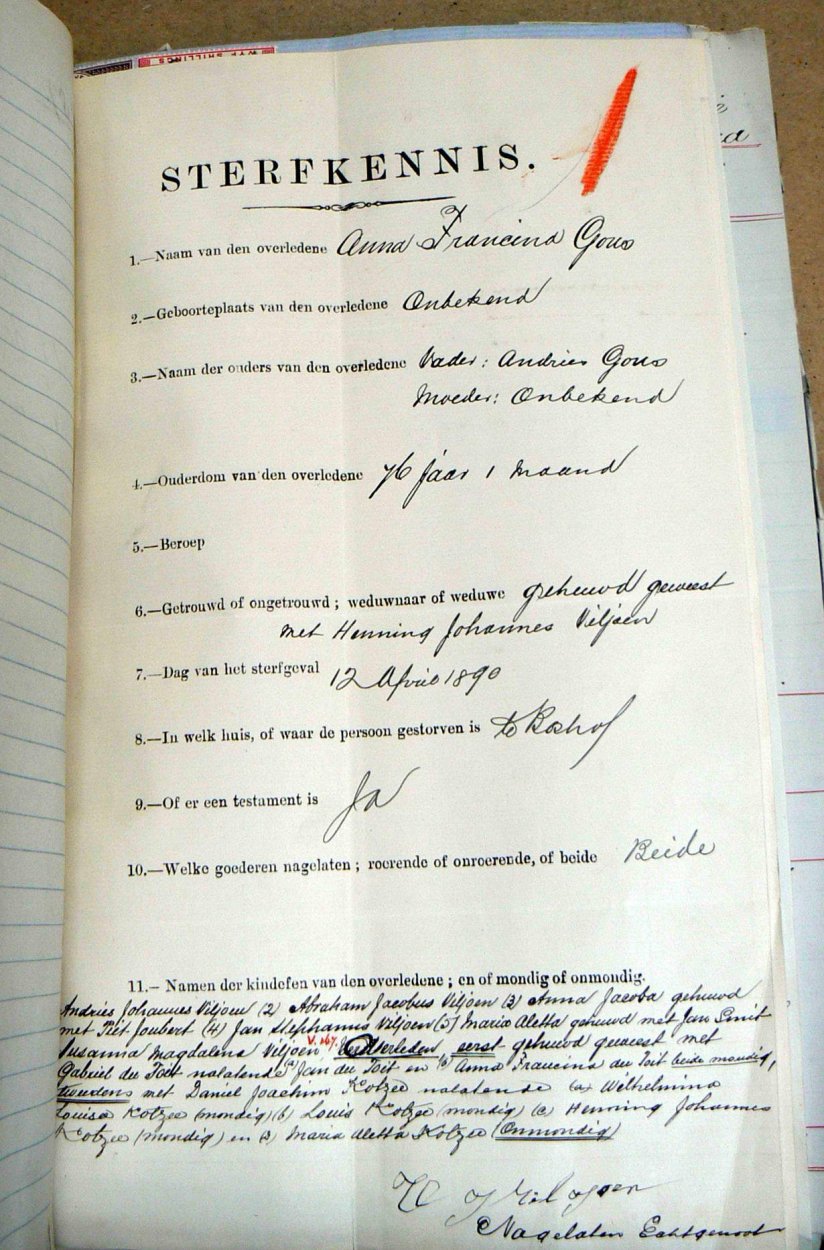 VYF SHILLINGS
STERFKENNIS.
1.—Naam van den overledene Anna Francina Gous
2.—Geboorteplaats van den overledene Onbekend
3.—Naam der ouders van den overledene Vader: Andries Gous
Moeder: Onbekend
4.—Ouderdom van den overledene 76 jaar 1 maand
5.—Beroep
6.—Getrouwd of ongetrouwd; weduwnaar of weduwe gehuwd geweest
met Henning Johannes Viljoen
7.—Dag van het sterfgeval 12 April 1890
8.—In welk huis, of waar de persoon gestorven is te Boshof
9.—Of er een testament is Ja
10.—Welke goederen nagelaten; roerende of onroerende, of beide Beide
11.—Namen der kinderen van den overledene; en of mondig of onmondig.
Andries Johannes Viljoen (2) Abraham Jacobus Viljoen (3) Anna Jacoba gehuwd
met Piet Joubert (4) Jan Stephanus Viljoen (5) Maria Aletta gehuwd met Jan Smit
Susanna Magdalena Viljoen overleden, eerst gehuwd geweest met
Gabriel du Toit nalatende (a) Jan du Toit en (b) Anna Francina du Toit beide mondig,
tweedens met Daniel Joachim Kotzee nalatende (a) Wilhelmina
Louisa Kotzee (mondig) (b) Louis Kotzee (mondig) (c) Henning Johannes
Kotzee (mondig) en (d) Maria Aletta Kotzee (Onmondig)
H J Viljoen
Nagelaten Echtgenoot